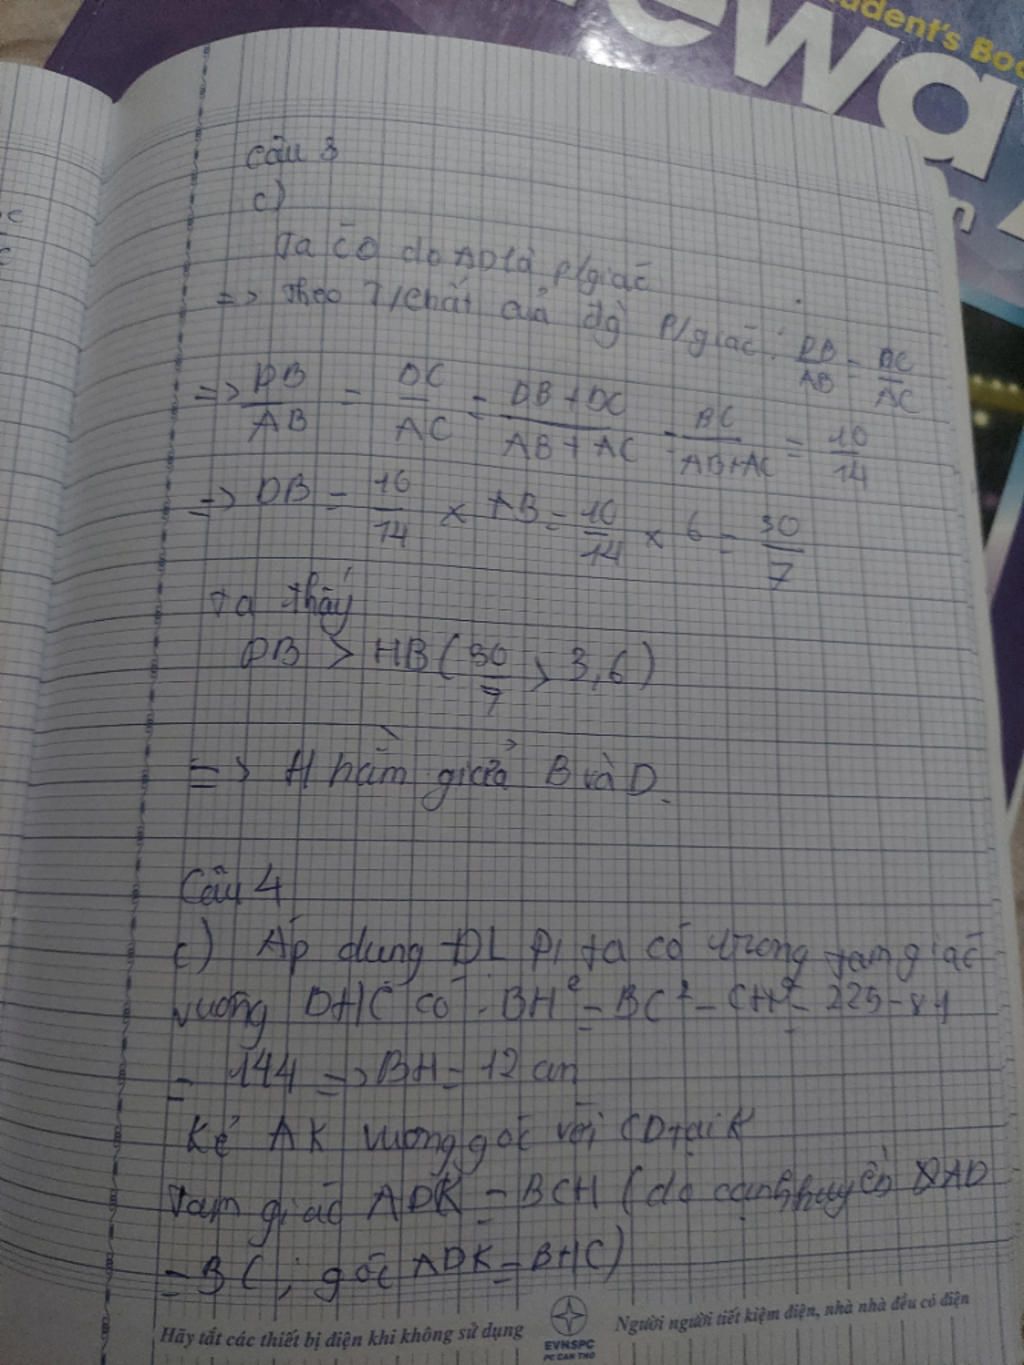 ewa
Student's Boo
Câu 3
c)
Ta có do AD là p/giác
=> Theo T/chất của đg p/giác: DB/AB = DC/AC
=> DB/AB = DC/AC = DB+DC/AB+AC = BC/AB+AC = 10/14
=> DB = 10/14 x AB = 10/14 x 6 = 30/7
Ta thấy
DB > HB (30/7 > 3,6)
=> H nằm giữa B và D.
Câu 4
c) Áp dụng ĐL pi ta có trong tam giác
vuông BHC có. BH² = BC² - CH² = 225-81
= 144 => BH = 12 cm
Kẻ AK vuông góc với CD tại K
Tam giác ADK = BCH (do cạnh huyền AD
= BC; góc ADK = BHC)
Hãy tắt các thiết bị điện khi không sử dụng
EVNSPC
PC CAN THO
Người người tiết kiệm điện, nhà nhà đều có điện